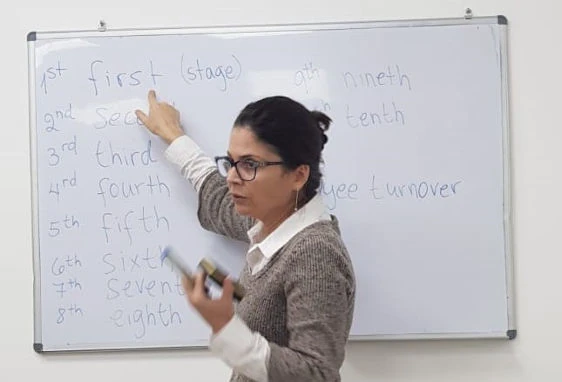 1st first (stage)
2nd sec
3rd third
4rd fourth
5th fifth
6th sixth
7th sevent
8th eighth
9th nineth
tenth
yee turnover